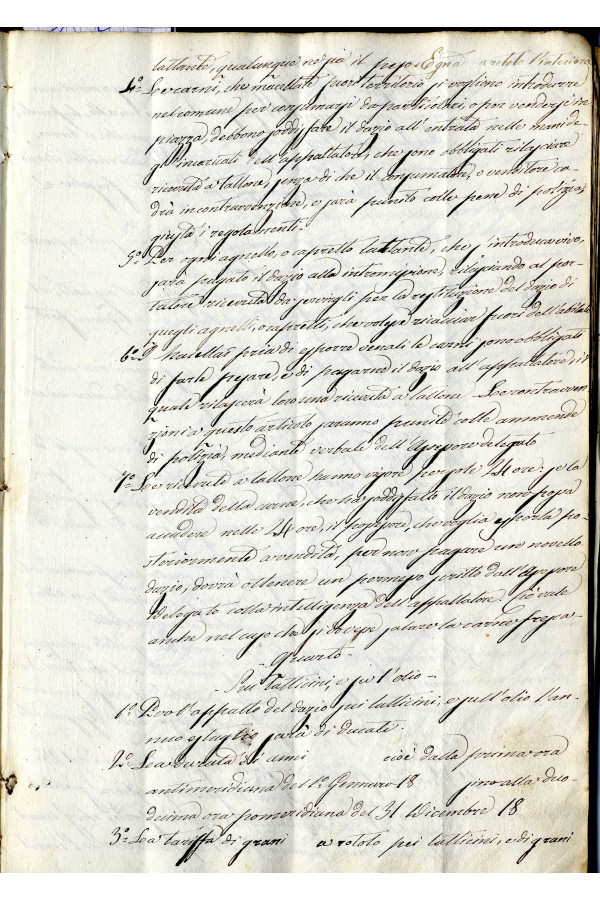 lattante, qualunque ne sia il peso. Egna a rotolo l'intesione
4.° Le carni, che macellate fuori territorio si vogliono introdurre
nel comune per consumarsi da particolari, o per vendersi in
piazza, debbono soddisfare il dazio all'entrata nelle mani de-
gl'incaricati dell'appaltatore, che sono obbligati rilasciare
ricevuta a tallone, senza di che il consumatore, o venditore ca-
drà in contravvenzione, e sarà punito colle pene di polizia,
giusta i regolamenti.
5.° Per ogni agnello, o capretto lattante, che s'introduca vivo,
sarà pagato il dazio alla intromissione, rilasciando al por-
tatore ricevuta da per la restituzione del dazio di
quegli agnelli, o capretti, che volesse ricacciar fuori dell'abitato
6.° I macellai pria di esporre venali le carni sono obbligati
di farle pesare, e di pagarne il dazio all'appaltatore, il
quale rilascerà loro una ricevuta a tallone. Le contravven
zioni a questo articolo saranno punite colle ammende
di polizia, mediante verbale dell'Assessore delegato
7.° Le ricevute a tallone hanno vigore per sole 24 ore: se la
vendita della carne, che ha soddisfatto il dazio non possa
accadere nelle 24 ore, il possessore, che voglia esporla po-
steriormente a vendita, per non pagare un novello
dazio, dovrà ottenere un permesso scritto dall'Assessore
delegato colla intelligenza dell'appaltatore. Ciò vale
anche nel caso che si dovesse salare la carne fresca
- Quarto -
- Sui latticini, e su l'olio -
1.° Per l'appalto del dazio sui latticini, e sull'olio l'an-
nuo estaglio sarà di ducati.
2.° La durata di anni cioè dalla prima ora
antimeridiana del 1.° Gennaro 18 sino alla duo-
decima ora pomeridiana del 31 Dicembre 18
3.° La tariffa di grani a rotolo pei latticini, e di grani